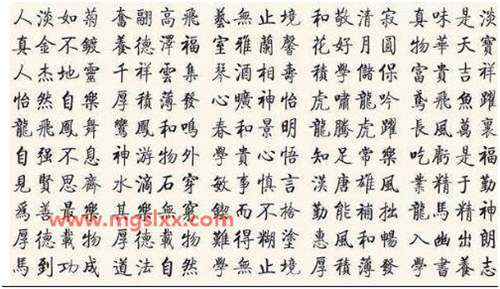 人淡如菊奮翮高飛藝無止境和敬清寂真味是淡
真金不鍍養德澤福室雅蘭馨花好月圓物華天寶
人杰地靈千祥雲集琴酒相壽積學儲保富貴吉祥
怡然自樂厚積薄發心曠神怡虎嘯龍吟鳶飛魚躍
龍飛鳳舞鸞鳳和鳴春和景明龍騰虎躍長風萬裏
自强不息神游物外學貴心悟知足常樂吃虧是福
見賢思齋水滴石穿敏事慎言漢唐雄風業精于勤
爲善最樂其樂無窮而不勤能補拙龍馬精神
厚德載物厚德載物難得糊塗惠風和暢入幽出朗
馬到功成道法自然學無止境厚積薄發學書養志
www.mgslxx.com